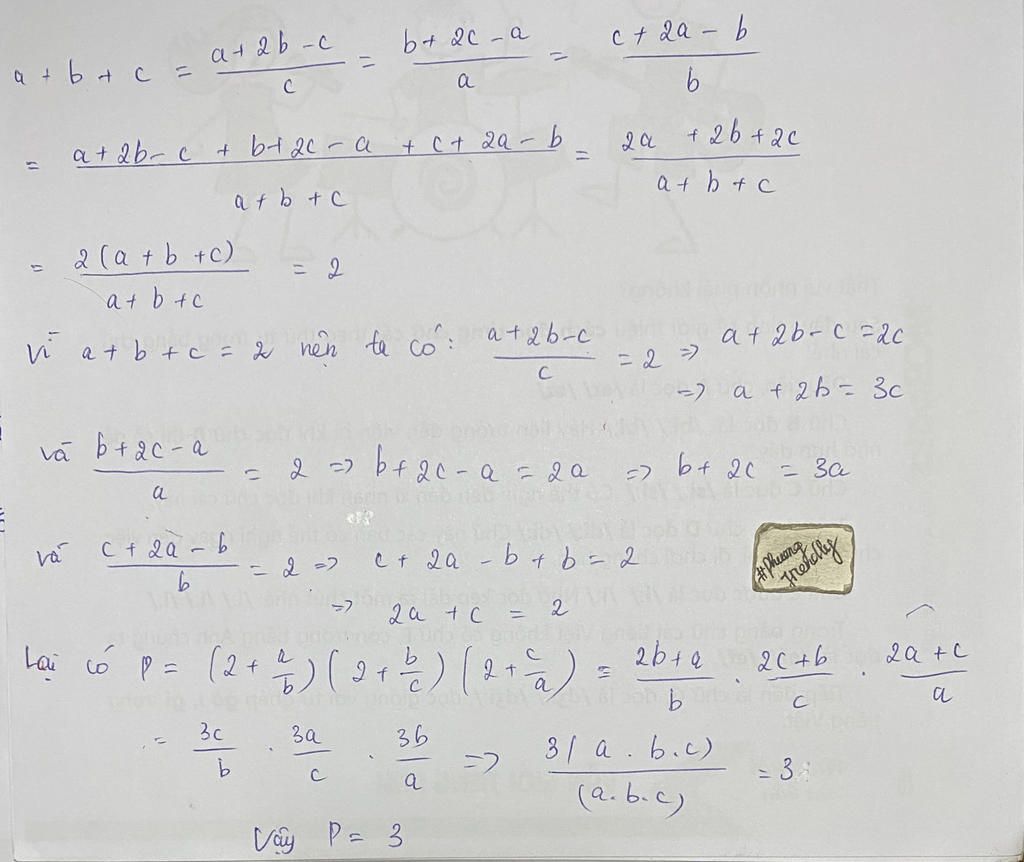 a + b + c = (a + 2b - c)/c = (b + 2c - a)/a = (c + 2a - b)/b
= (a + 2b - c + b + 2c - a + c + 2a - b)/(a + b + c) = (2a + 2b + 2c)/(a + b + c)
= 2(a + b + c)/(a + b + c) = 2
Vì a + b + c = 2 nên ta có: (a + 2b - c)/c = 2 => a + 2b - c = 2c
=> a + 2b = 3c
và (b + 2c - a)/a = 2 => b + 2c - a = 2a => b + 2c = 3a
và (c + 2a - b)/b = 2 => c + 2a - b + b = 2
=> 2a + c = 2
#Phuong
friendly
Lại có P = (2 + a/b)(2 + b/c)(2 + c/a) = (2b + a)/b . (2c + b)/c . (2a + c)/a
= 3c/b . 3a/c . 3b/a => 3(a . b . c)/(a . b . c) = 3
Vậy P = 3